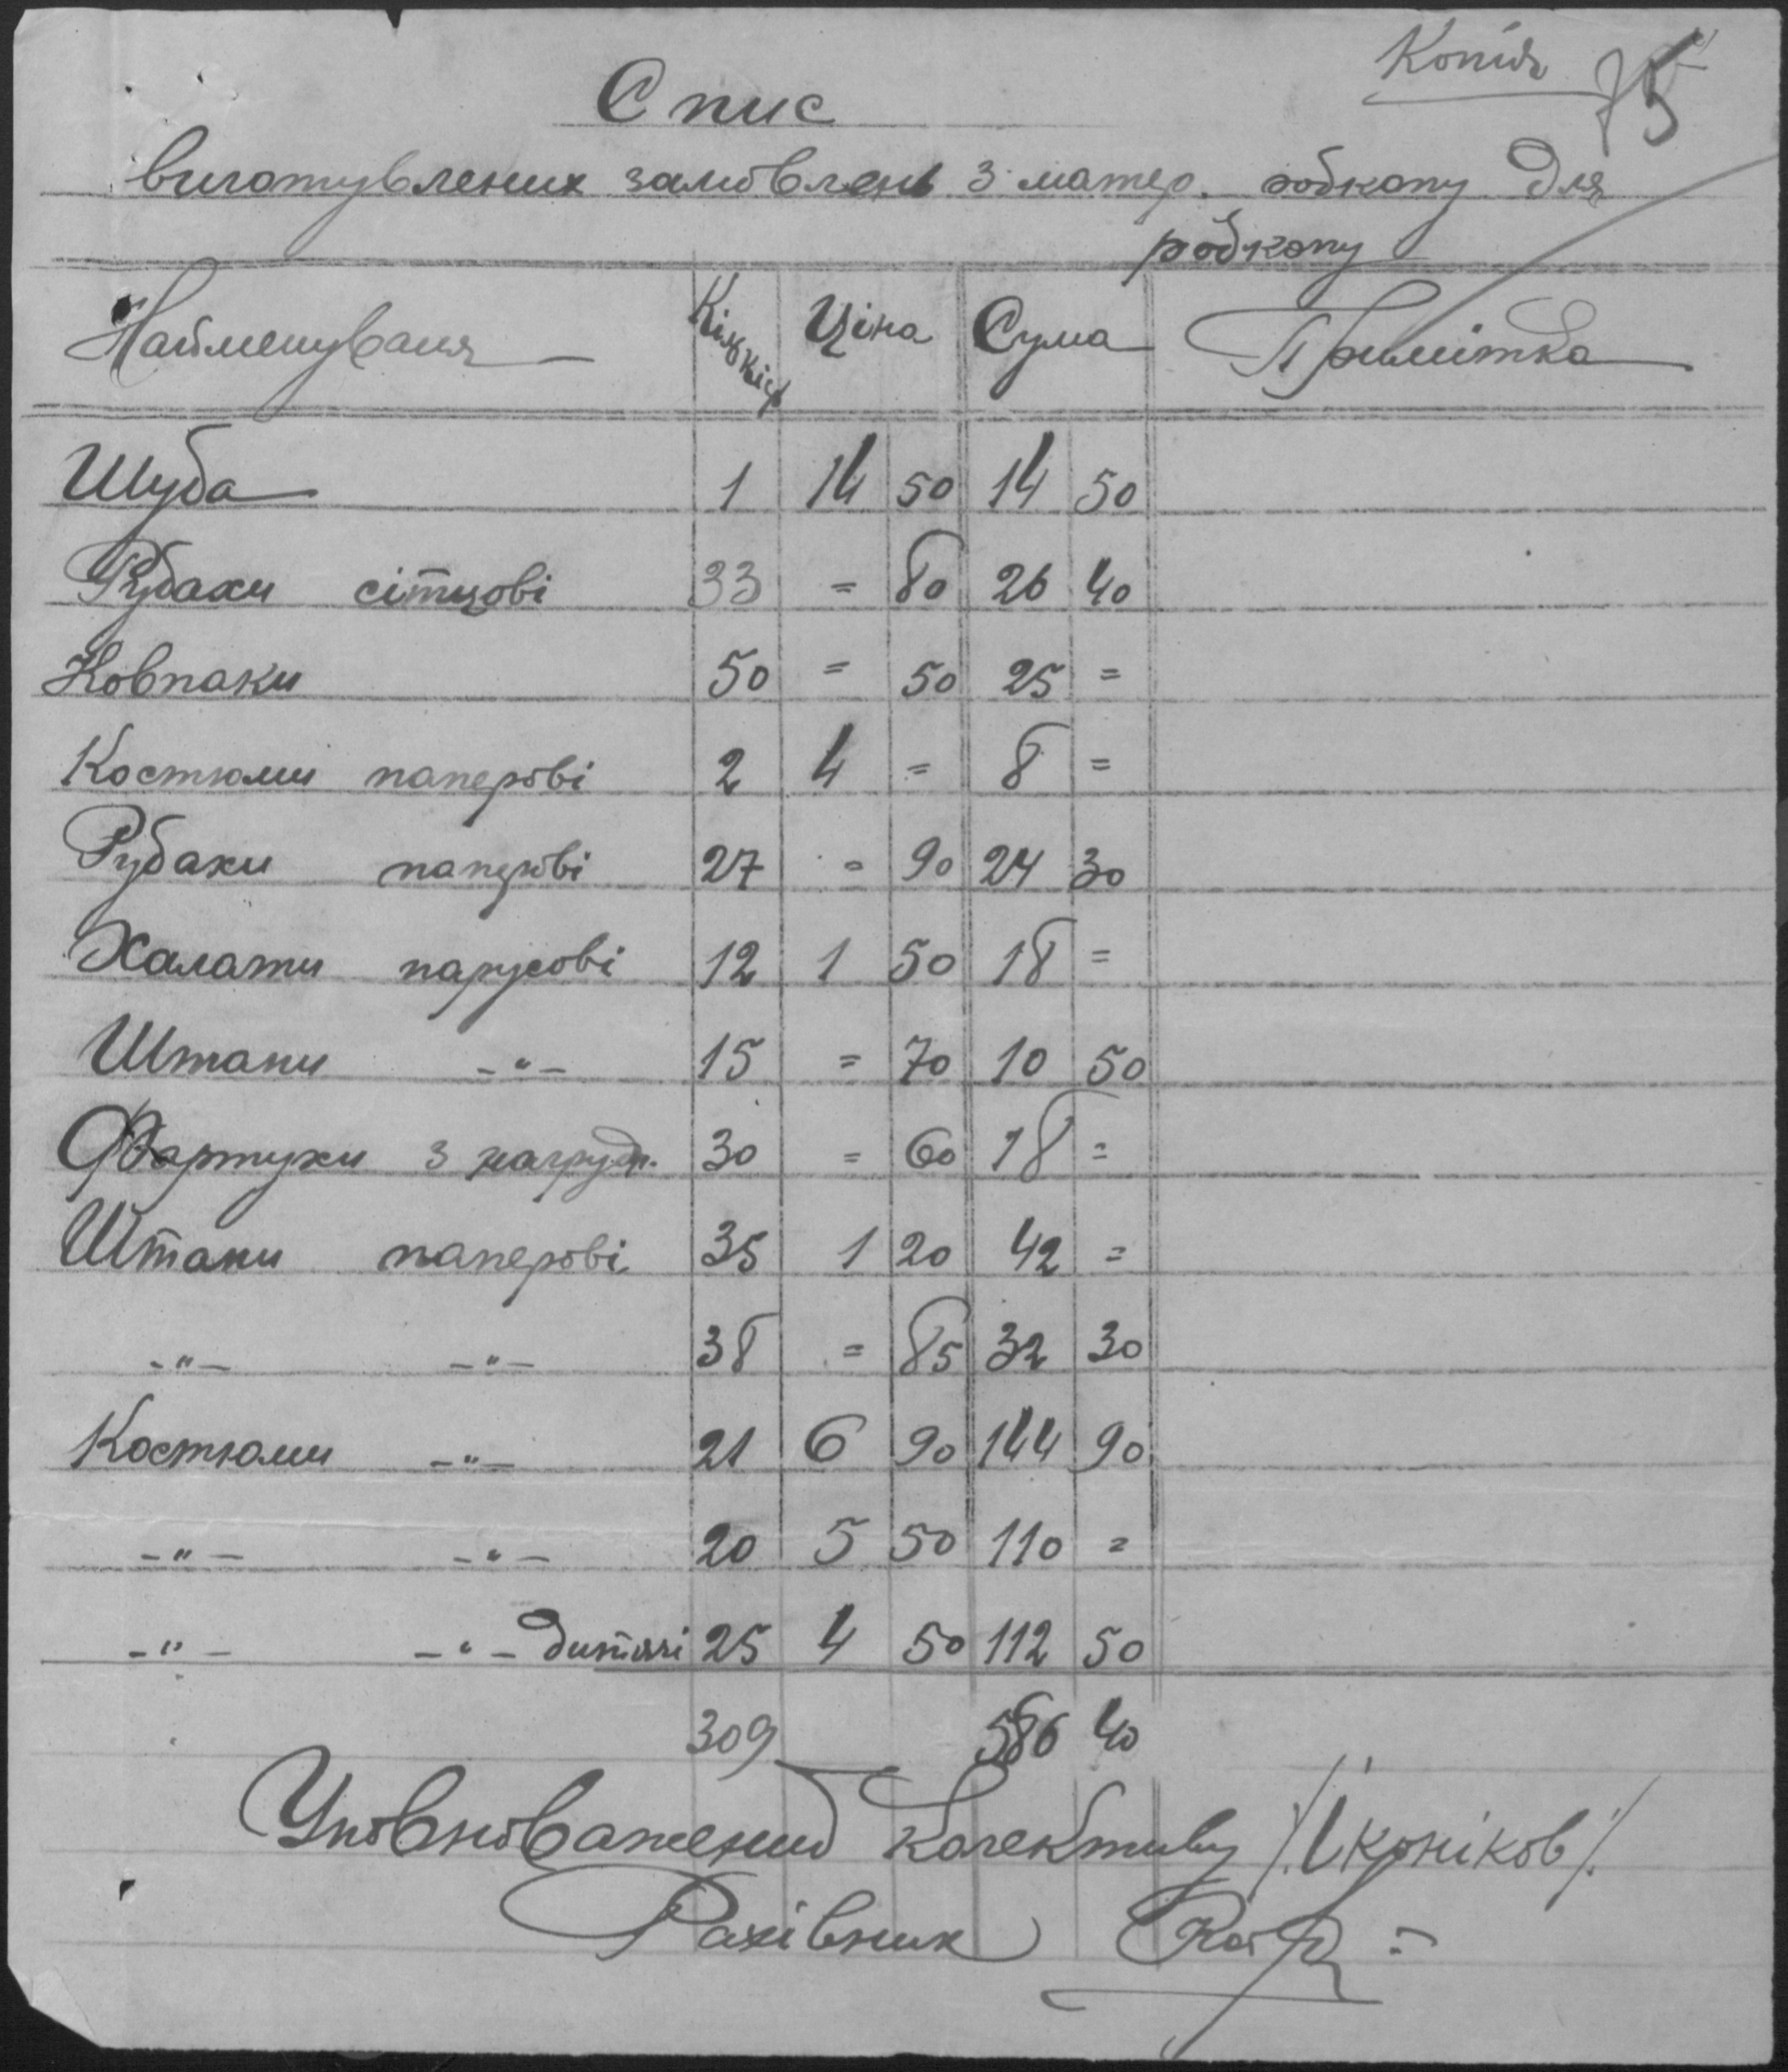 Копія 75
Спис
виготувлених замовлень з матер. робкопу для
робкопу
Найменуваня Кількість Ціна Сума Примітка
Шуба 1 14 50 14 50
Рубахи сітцові 33 = 80 26 40
Ковпаки 50 = 50 25 =
Костюми паперові 2 4 = 8 =
Рубахи паперові 27 = 90 24 30
Халати парусові 12 1 50 18 =
Штани -"- 15 = 70 10 50
Фартухи з нагрудн. 30 = 60 18 =
Штани паперові 35 1 20 42 =
-"- -"- 38 = 85 32 30
Костюми -"- 21 6 90 144 90
-"- -"- 20 5 50 110 =
-"- -"- дитячі 25 4 50 112 50
309 586 40
Уповноважений колективу /Іконіков/
Рахівник